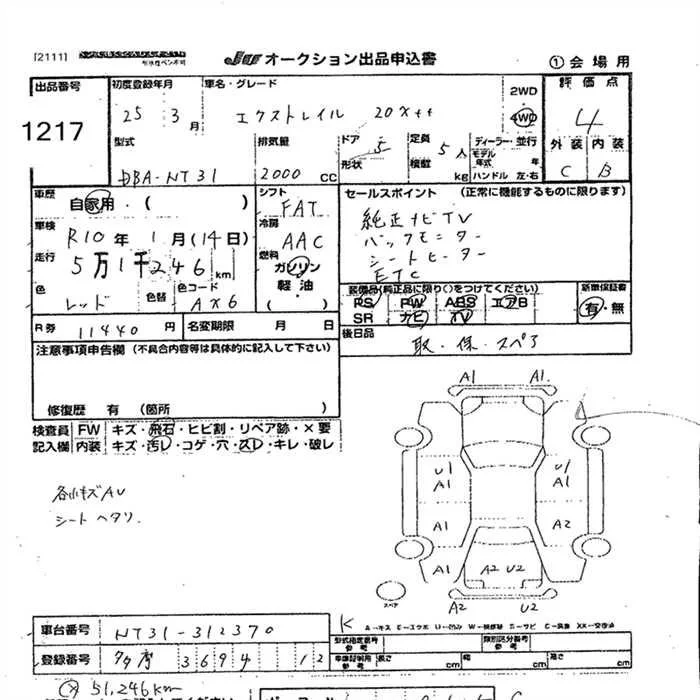 [2111]
JU オークション出品申込書 ①会場用
出品番号 1217
初度登録年月 25年 3月
車名・グレード エクストレイル 20X tt
2WD
4WD
評価点 4
型式 DBA-NT31
排気量 2000 CC
ドア 5
形状
定員 5人
積載 kg
ディーラー・並行
モデル年式 年
ハンドル 左・右
外装 C
内装 B
車歴 自家用・( )
シフト FAT
セールスポイント (正常に機能するものに限ります)
純正ナビTV
バックモニター
シートヒーター
ETC
車検 R10年 1月(14日)
冷房 AAC
走行 5万1千246km
燃料 ガソリン
軽油
( )
色 レッド
色替
色コード AX6
装備品(純正品に限り○をつけてください)
PS PW ABS エアB
SR ナビ TV
新車保証書
有・無
R券 11440円
名変期限 月 日
後日品 取・保・スペア
注意事項申告欄 (不具合内容等は具体的に記入して下さい)
修復歴 有 (箇所 )
検査員 FW キズ・飛石・ヒビ割・リペア跡・X要
記入欄 内装 キズ・汚レ・コゲ・穴・スレ・キレ・破レ
各小キズAU
シートヘタリ.
A1 A1
U1
A1
U1
A1
A1 A2
A1 A2 U2 A1
スペア
A2 U2
車台番号 NT31-312370
登録番号 3694 12
型式指定番号
参考
類別区分番号
参考
参考 長さ cm 幅 cm 高さ cm
51,246km